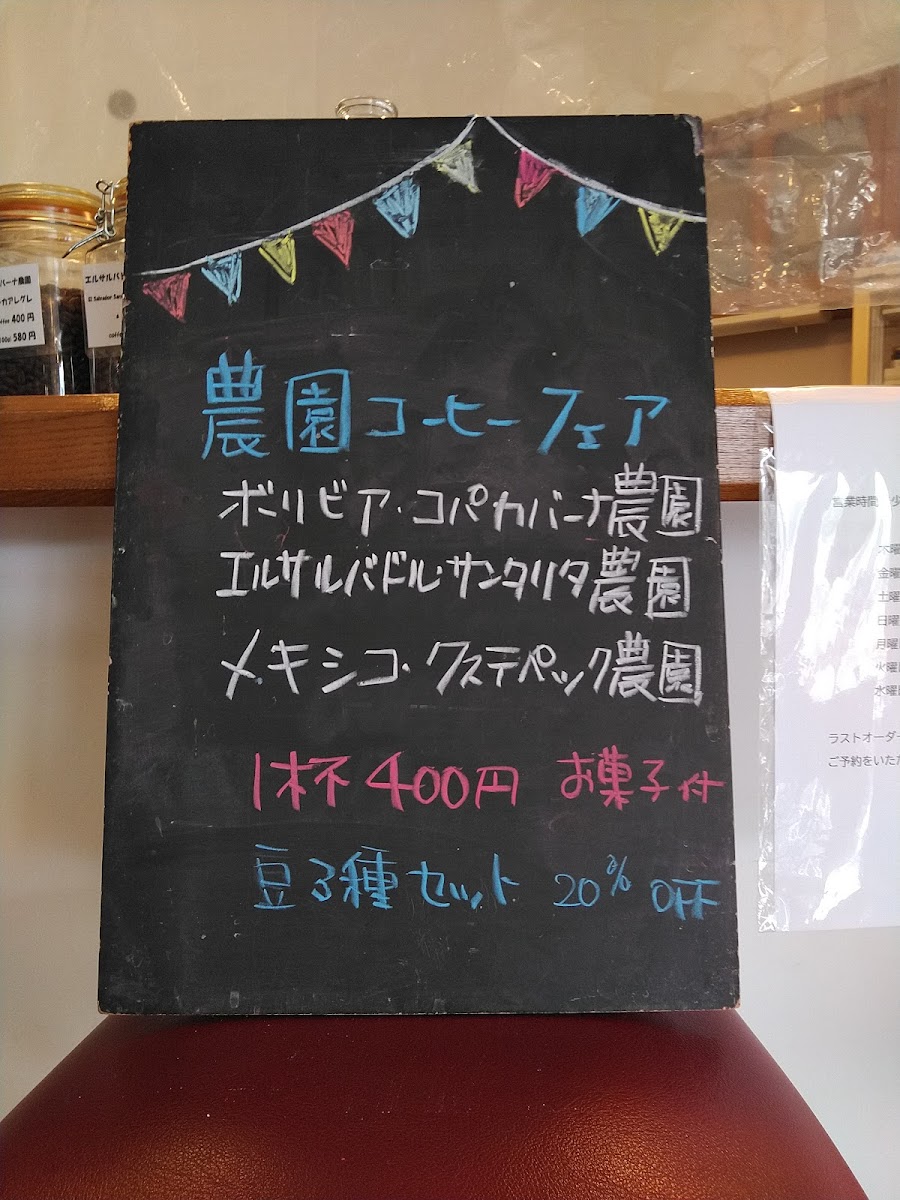 農園コーヒーフェア
ボリビア・コパカバーナ農園
エルサルバドル・サンタリタ農園
メキシコ・クステペック農園
1杯 400円 お菓子付
豆3種セット 20% OFF
バーナ農園
カアレグレ
400円
580円
エルサルバド
El Salvador
営業時間
木曜
金曜
土曜
日曜
月曜
火曜
水曜
ラストオーダー
ご予約をいただ